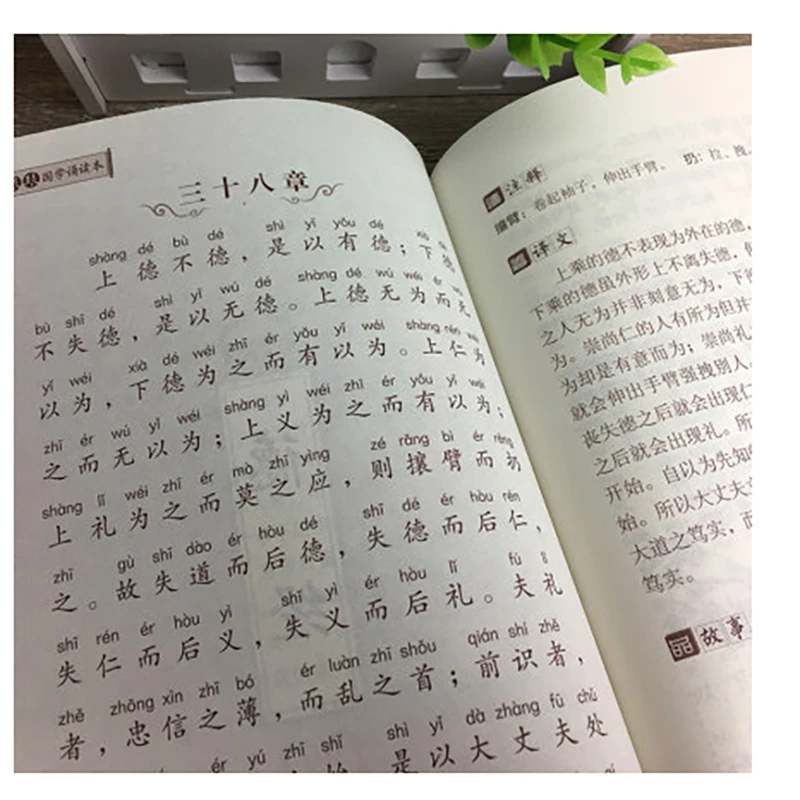 国学诵读本
三十八章
shàng dé bù dé shì yǐ yǒu dé xià dé
上德不德，是以有德；下德
bù shī dé shì yǐ wú dé shàng dé wú wéi ér wú
不失德，是以无德。上德无为而无
yǐ wéi xià dé wéi zhī ér yǒu yǐ wéi shàng rén wéi
以为，下德为之而有以为。上仁为
zhī ér wú yǐ wéi shàng yì wéi zhī ér yǒu yǐ wéi
之而无以为；上义为之而有以为；
shàng lǐ wéi zhī ér mò zhī yìng zé rǎng bì ér rēng
上礼为之而莫之应，则攘臂而扔
zhī gù shī dào ér hòu dé shī dé ér hòu rén
之。故失道而后德，失德而后仁，
shī rén ér hòu yì shī yì ér hòu lǐ fú lǐ
失仁而后义，失义而后礼。夫礼
zhě zhōng xìn zhī bó ér luàn zhī shǒu qián shí zhě
者，忠信之薄，而乱之首；前识者，
ér yú zhī shǐ shì yǐ dà zhàng fū chǔ
是以大丈夫处
注释
攘臂：卷起袖子，伸出手臂。 扔：拉、拽。
译文
上乘的德不表现为外在的德，
下乘的德虽外形上不离失德，
之人无为并非刻意无为，下
为。崇尚仁的人有所为但并
为却是有意而为；崇尚礼
就会伸出手臂强拽别人。
丧失德之后就会出现仁
之后就会出现礼。所
开始。自以为先知
始。所以大丈夫立
大道之笃实，而
笃实。
故事